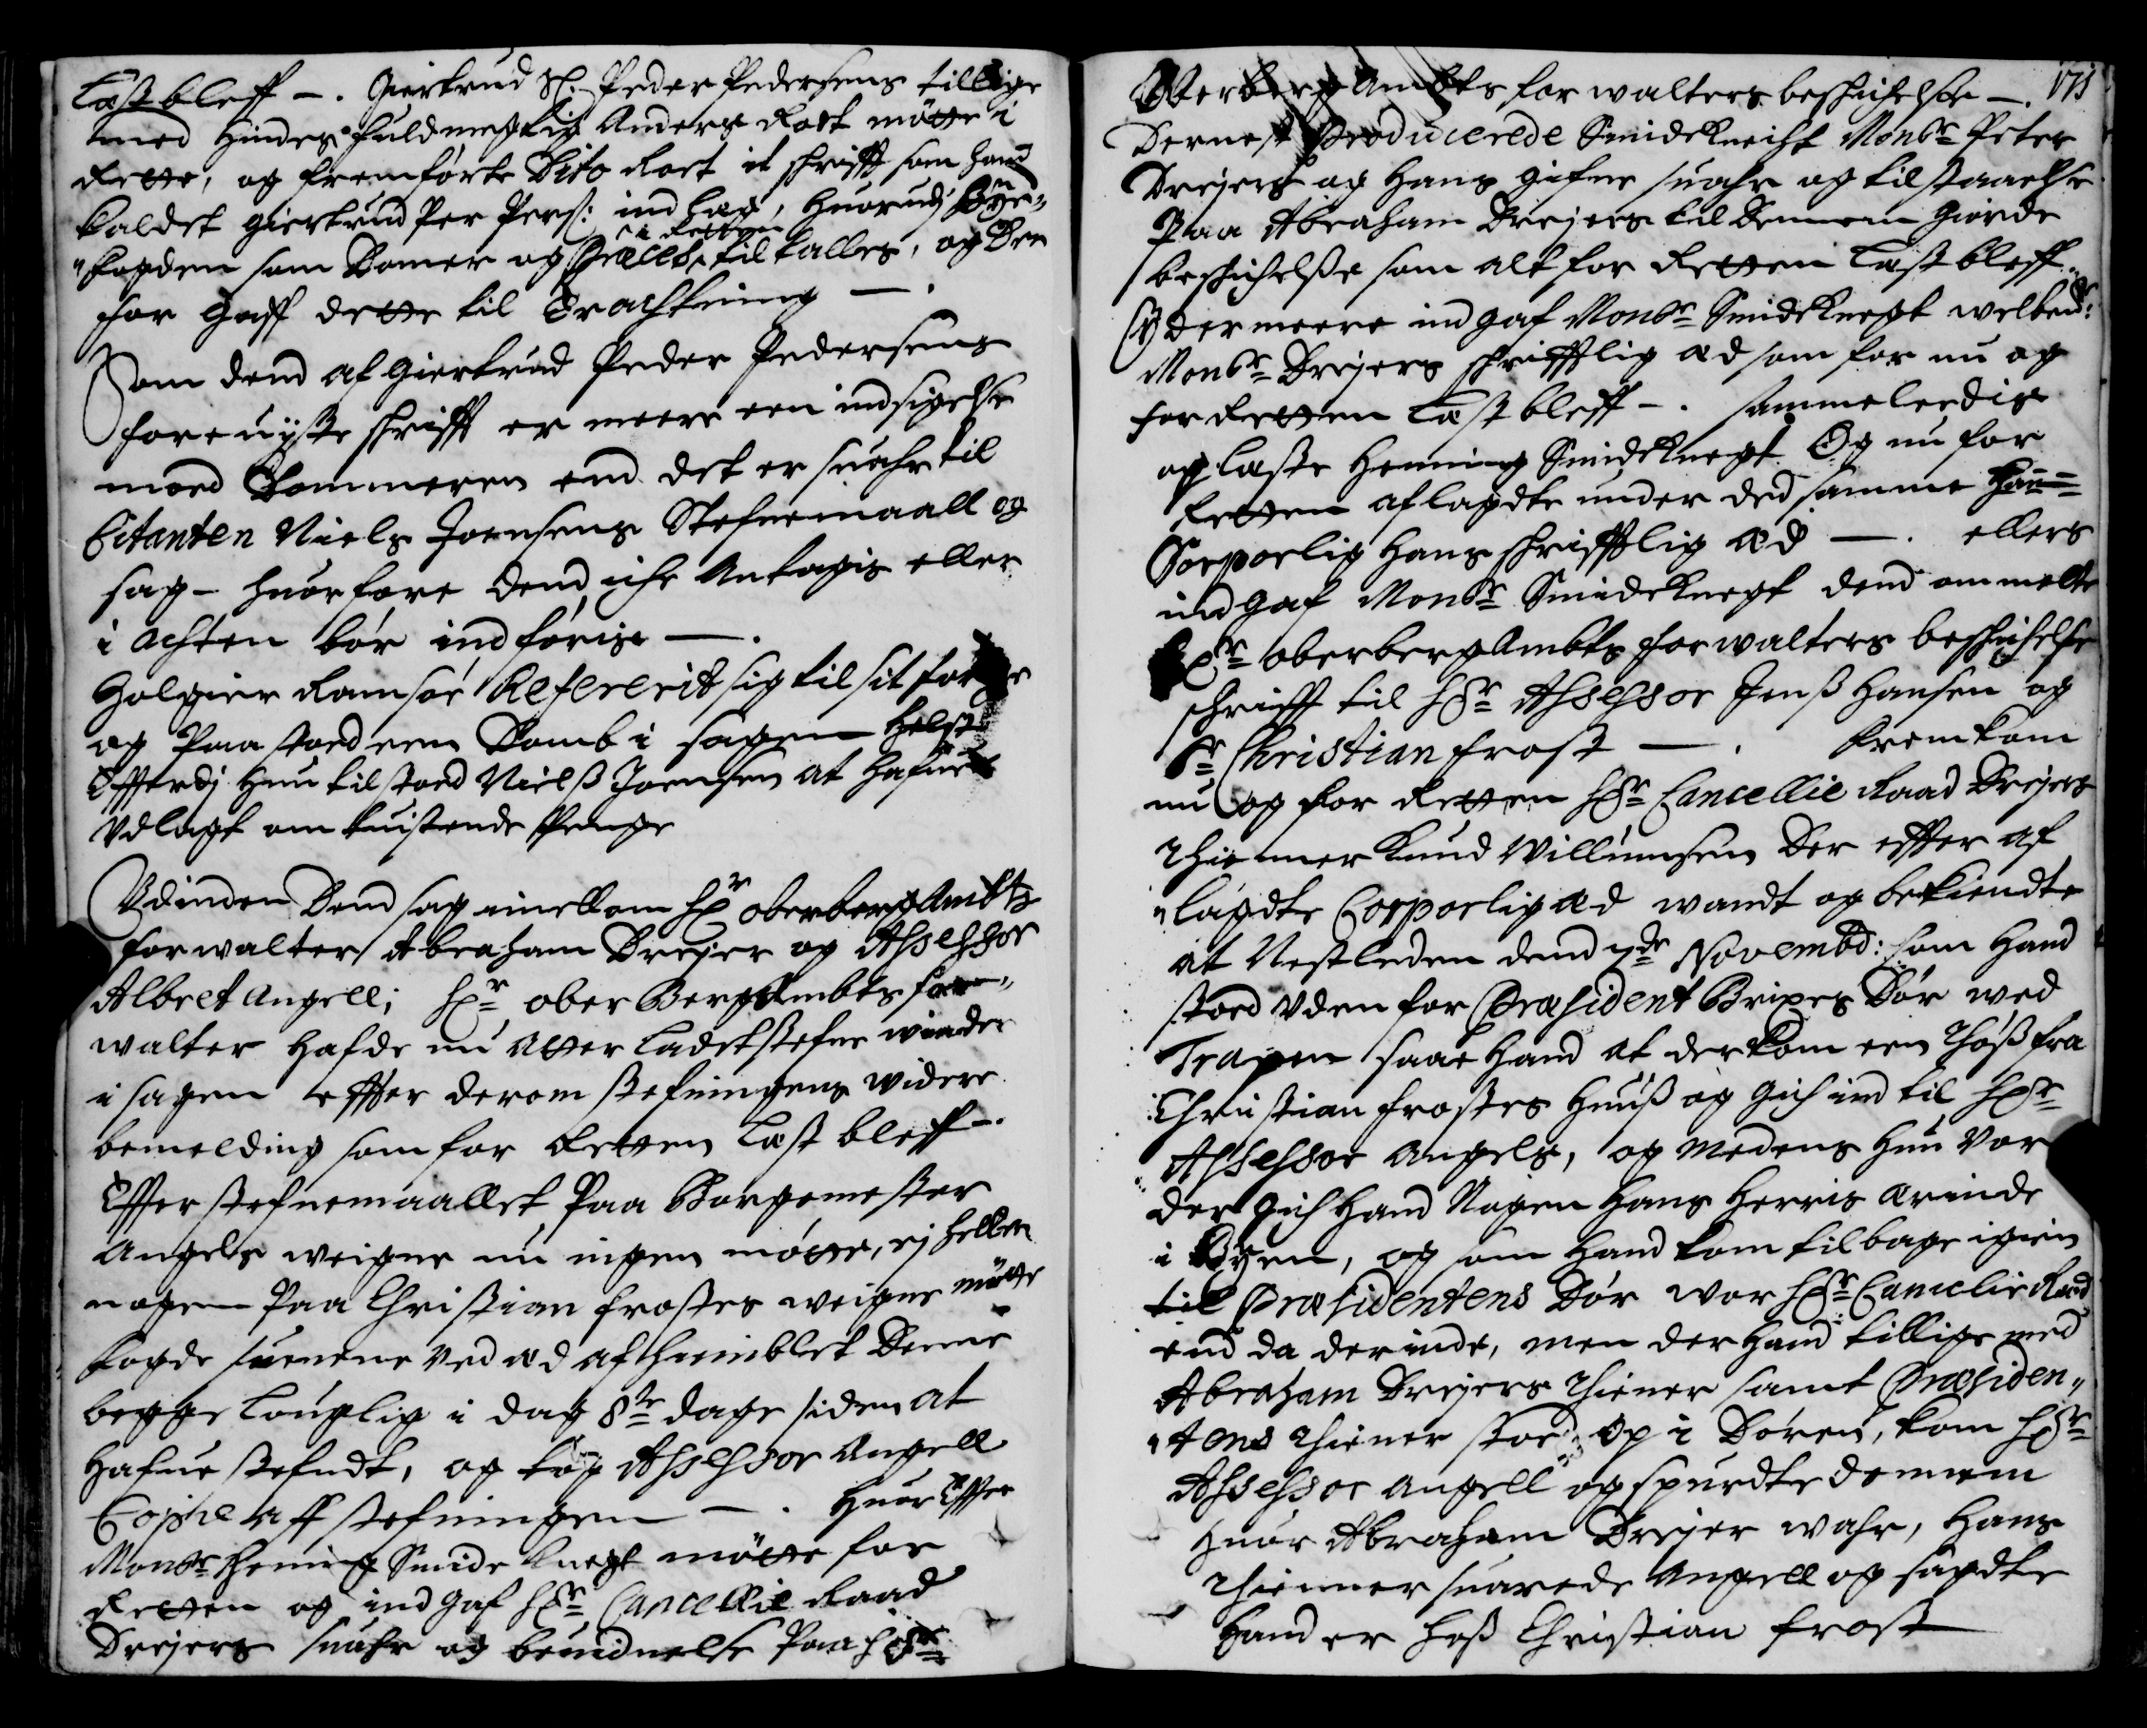 Læst bleff —. Giertrud Sl. Peder Pedersens tillige
med hindes fuldmegtig Anders Rost møtte i
Rette, og fremførte Dito Rost it schrifft som hand
kaldet giertrud Per Pers: ind læg, huorudj Bye„
„fogden som Domer og Præces i Retten tiltalles, og der
for gaff dette til Tracterning —.
Som dend af Giertrud Peder Pedersens
foreuyste schrifft er meere een indsigelse
moed Dommeren end det er suahr til
Citanten Niels Joensens Stefnemaall og
sag – huorfore dend iche Antagis eller
i achten bør indføris —.
Holgier Ramsøe Refererit sig til sit forrige
og Paastoed een Domb i sagen helst
Efferdj hun tilstoed Nielß Joensen at hafue
Udlagt om tuistende Penge
Udinden Dend sag imellom Hr oberbergAmbts
forwalter Abraham Dreyer og Assessor
Albret Angell; Hr ober BergAmbts for„
walter hafde nu atter ladet stefne winder
i sagen effter derom stefningens widere
bemelding som for Retten Læst bleff –.
Effter stefnemaallet Paa Borgemester
Angels weigne nu ingen møtte, ej heller
nogen Paa Christian Frostes weigne møtte
togde suenene ved æd afhiemblet Denne
begge louglig i dag 8te dage siden at
hafue stefndt, og tog Assessor Angell
Copie aff stefningen —. Huor Effter
Monsr Hening Smideknegt møtte for
Retten og ind gaf Hr Cancellie Raad
Dreyers suahr og beuidnelse Paa Hr
175
OberbergAmbts forwalters beschichelse —.
Dernest Producerede Smideknecht Monsr Peter
Dreyers og Hans gifne suahr og tilstaaelse
Paa Abraham Dreyers til Dennem giorde
beschichelße som alt for Retten Læst bleff„
Ydermeere ind gaf Monsr Smideknegt welbemte:
Monsr Dreyers schrifftlig æd som for nu og
for Retten Læst bleff –. sammeledis
oplæste Henning Smideknegt Og nu for
Retten aflagdte under ded samme hans
Corporlig hans schrifftlig æd —. ellers
ind gaf Monsr Smideknegt dend ommelte
Hr oberbergAmbts forwalters beschichelse
schrifft til Hr Assessor Jenß Hansen og
Sr Christian Frost —. fremkom
nu og for Retten Hr Cancellie Raad Dreyers
Thienner Knud Willumsen Der effter af
„lagdte Corporlig æd wandt og bekiendte
at Nestleden dend 7de Novembr: som hand
stoed uden for Præsident Brixes Dør wed
Trapen saae hand at der kom een Thøß fra
Christian Frostes huuß og gich ind til Hr
Assessor Angels, og medens hun var
der gich hand Nogen hans Herris Ærinde
i Byen, og som hand kom tilbage igien
til Præsidentens Dør war Hr Cancelie Raad
end da derinde, men der hand tillige med
Abraham Dreyers Thiener samt Præsiden„
„tens Thiener stoed op i Døren, kom Hr
Assessor Angell og spurdte dennem
huor Abraham Dreyer wahr, hans
Thienner suarede Angell og sagdte
hand er hoß Christian Frost